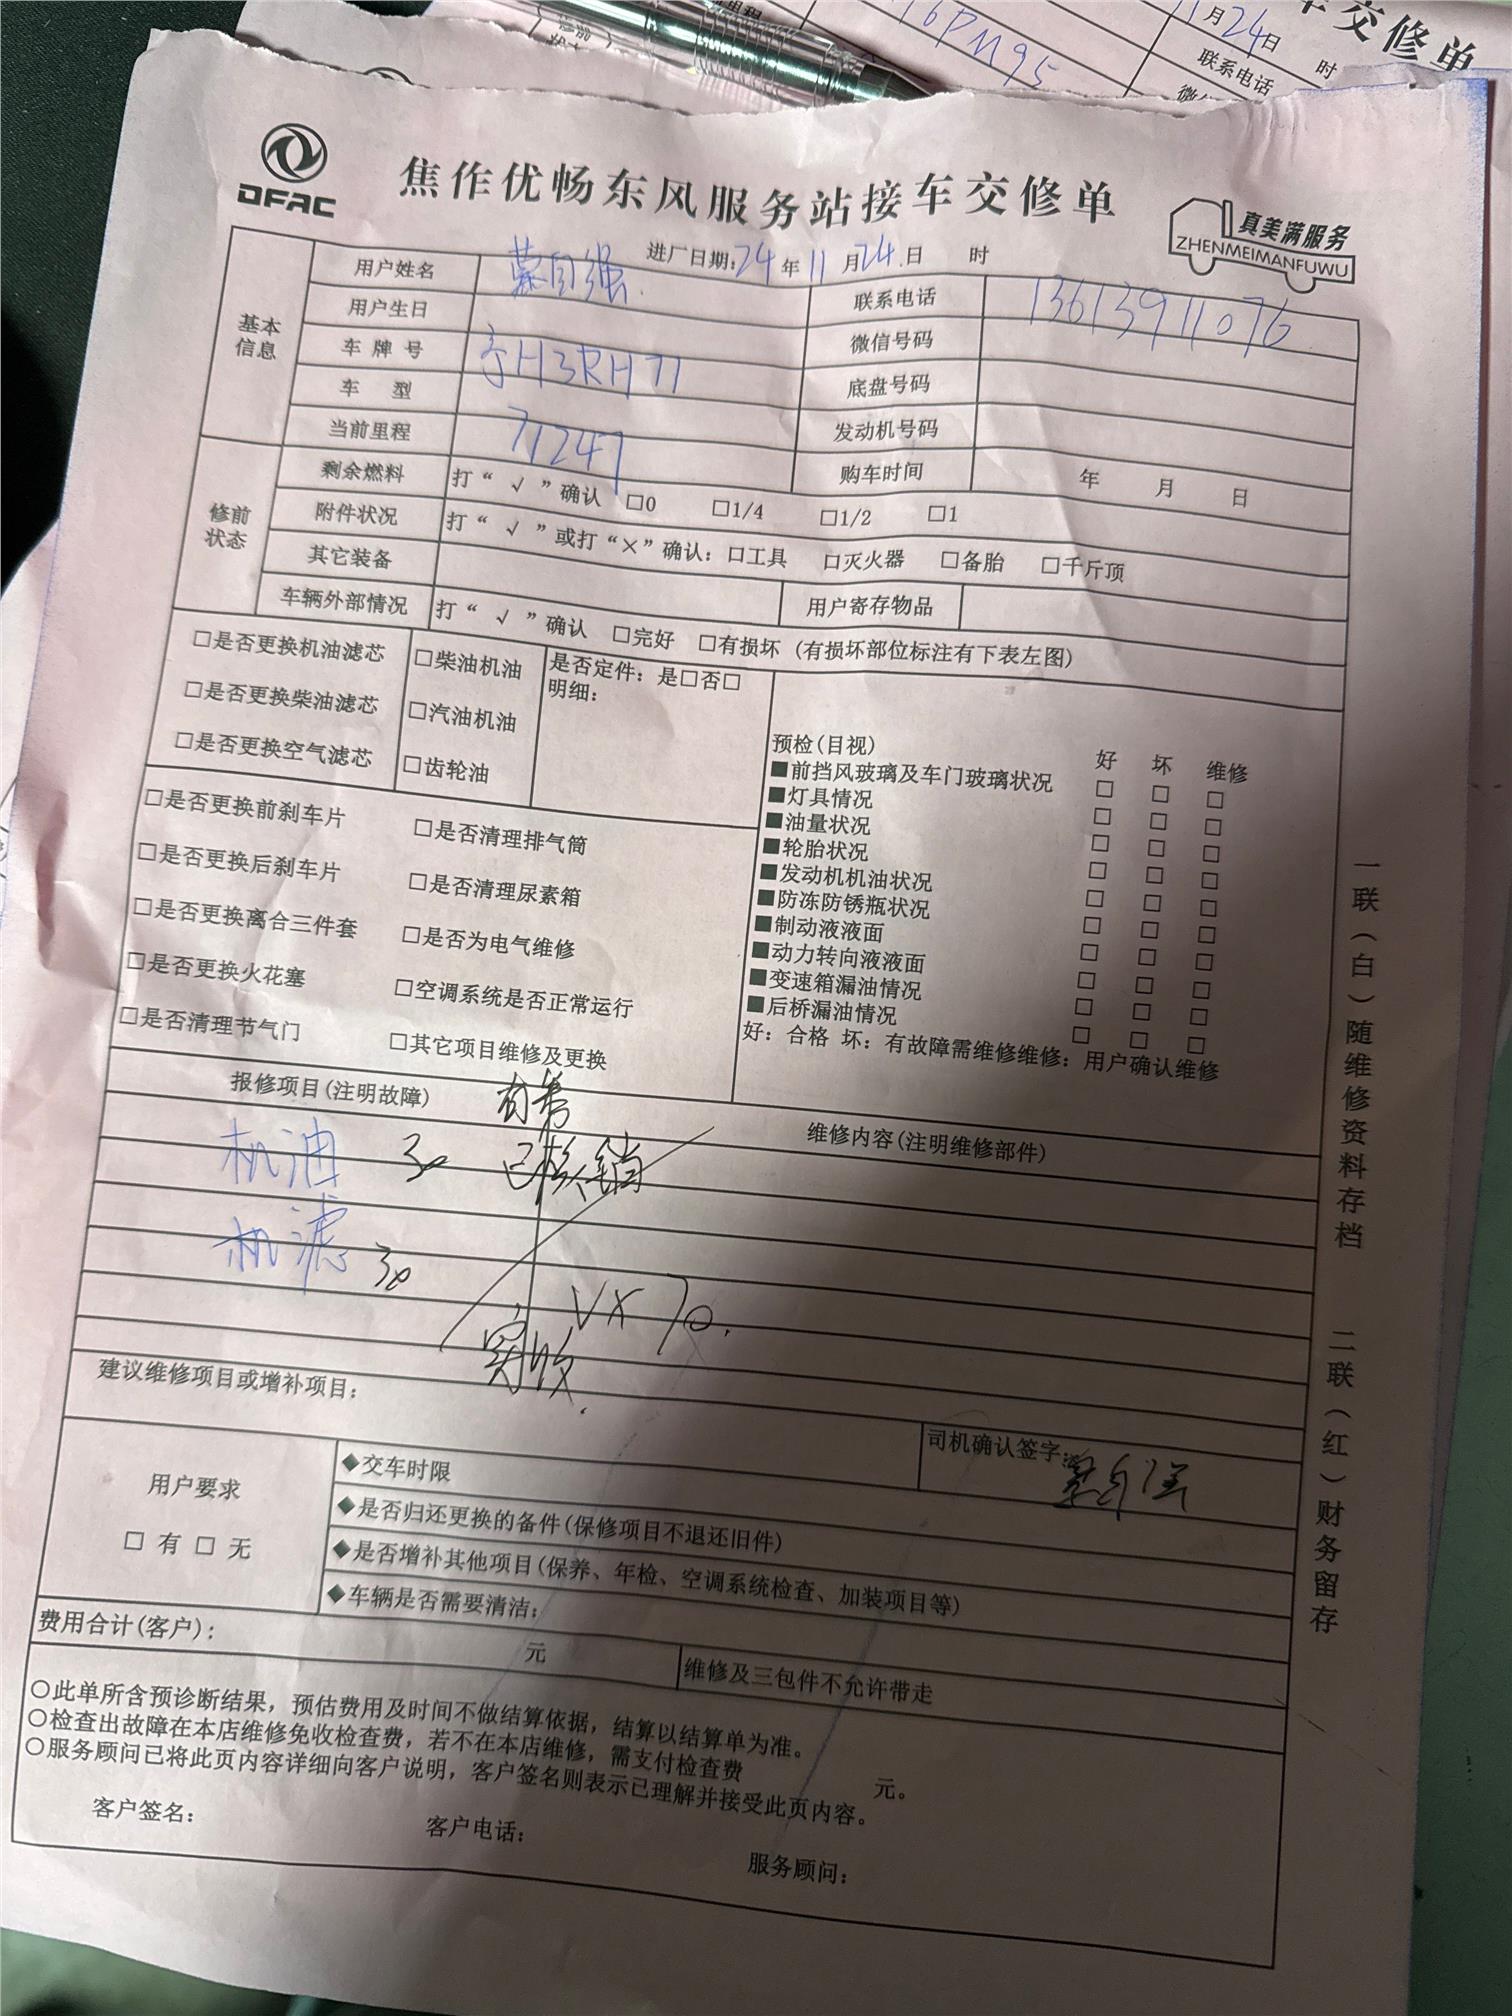 6PM95
月24日 时
车交修单
联系电话
DFAC
焦作优畅东风服务站接车交修单
真美满服务
ZHENMEIMANFUWU
进厂日期:24年11月24日 时
基本信息
用户姓名
联系电话 13613911076
用户生日
微信号码
车牌号 H3RH71
底盘号码
车 型
发动机号码
当前里程 71247
购车时间 年 月 日
修前状态
剩余燃料 打“√”确认 □0 □1/4 □1/2 □1
附件状况 打“√”或打“×”确认: □工具 □灭火器 □备胎 □千斤顶
其它装备
用户寄存物品
车辆外部情况 打“√”确认 □完好 □有损坏 (有损坏部位标注有下表左图)
□是否更换机油滤芯 □柴油机油 是否定件: 是□否□
明细:
□是否更换柴油滤芯 □汽油机油
□是否更换空气滤芯 □齿轮油
□是否更换前刹车片 □是否清理排气筒
□是否更换后刹车片 □是否清理尿素箱
□是否更换离合三件套 □是否为电气维修
□是否更换火花塞 □空调系统是否正常运行
□是否清理节气门 □其它项目维修及更换
预检(目视) 好 坏 维修
■前挡风玻璃及车门玻璃状况 □ □ □
■灯具情况 □ □ □
■油量状况 □ □ □
■轮胎状况 □ □ □
■发动机机油状况 □ □ □
■防冻防锈瓶状况 □ □ □
■制动液液面 □ □ □
■动力转向液液面 □ □ □
■变速箱漏油情况 □ □ □
■后桥漏油情况 □ □ □
好: 合格 坏: 有故障需维修维修: 用户确认维修
报修项目(注明故障)
维修内容(注明维修部件)
机油 30 已核销
机滤 30
VX 70.
实收
建议维修项目或增补项目:
司机确认签字:
用户要求
□ 有 □ 无
◆交车时限
◆是否归还更换的备件(保修项目不退还旧件)
◆是否增补其他项目(保养、年检、空调系统检查、加装项目等)
◆车辆是否需要清洁:
费用合计(客户): 元
维修及三包件不允许带走
○此单所含预诊断结果, 预估费用及时间不做结算依据, 结算以结算单为准。
○检查出故障在本店维修免收检查费, 若不在本店维修, 需支付检查费 元。
○服务顾问已将此页内容详细向客户说明, 客户签名则表示已理解并接受此页内容。
客户签名: 客户电话: 服务顾问:
一联(白)随维修资料存档 二联(红)财务留存